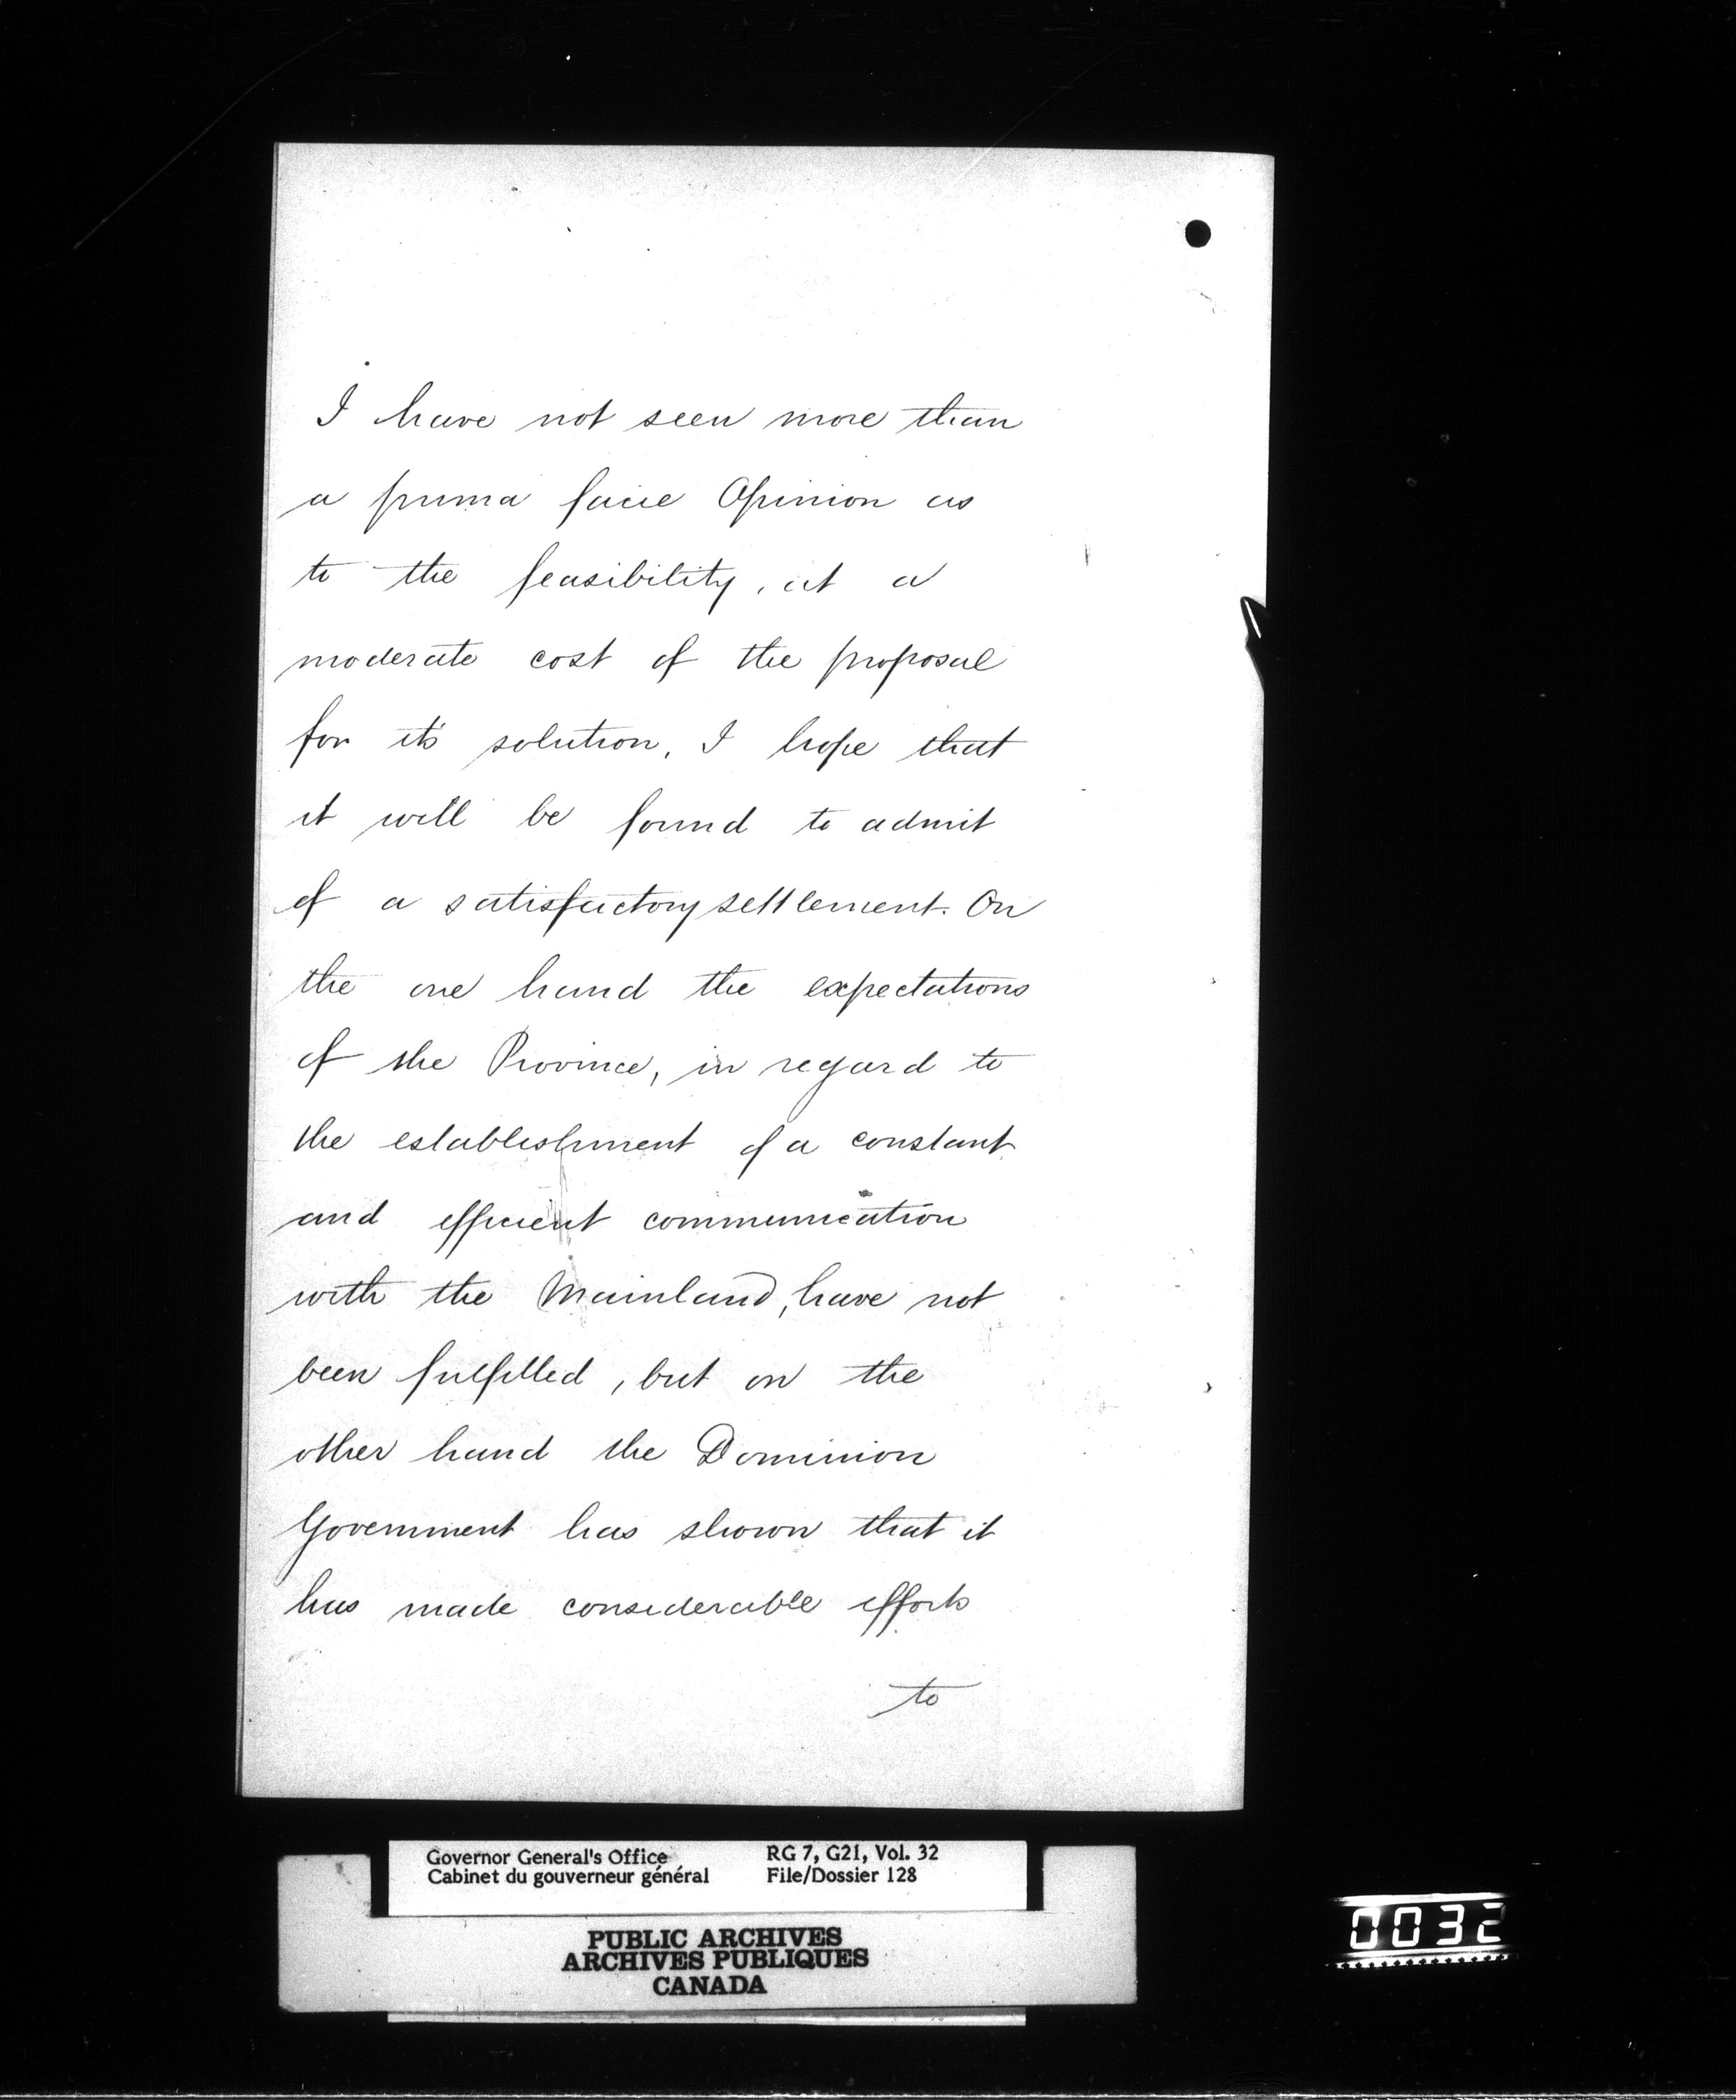 I have not seen more than
a prima facie Opinion as
to the feasibility, at a
moderate cost of the proposal
for it's solution, I hope that
it will be found to admit
of a satisfactory settlement. On
the one hand the expectations
of the Province, in regard to
the establishment of a constant
and efficient communication
with the Mainland, have not
been fulfilled, but on the
other hand the Dominion
Government has shown that it
has made considerable efforts
to
Governor General's Office RG 7, G21, Vol. 32
Cabinet du gouverneur général File/Dossier 128
PUBLIC ARCHIVES
ARCHIVES PUBLIQUES
CANADA
0032